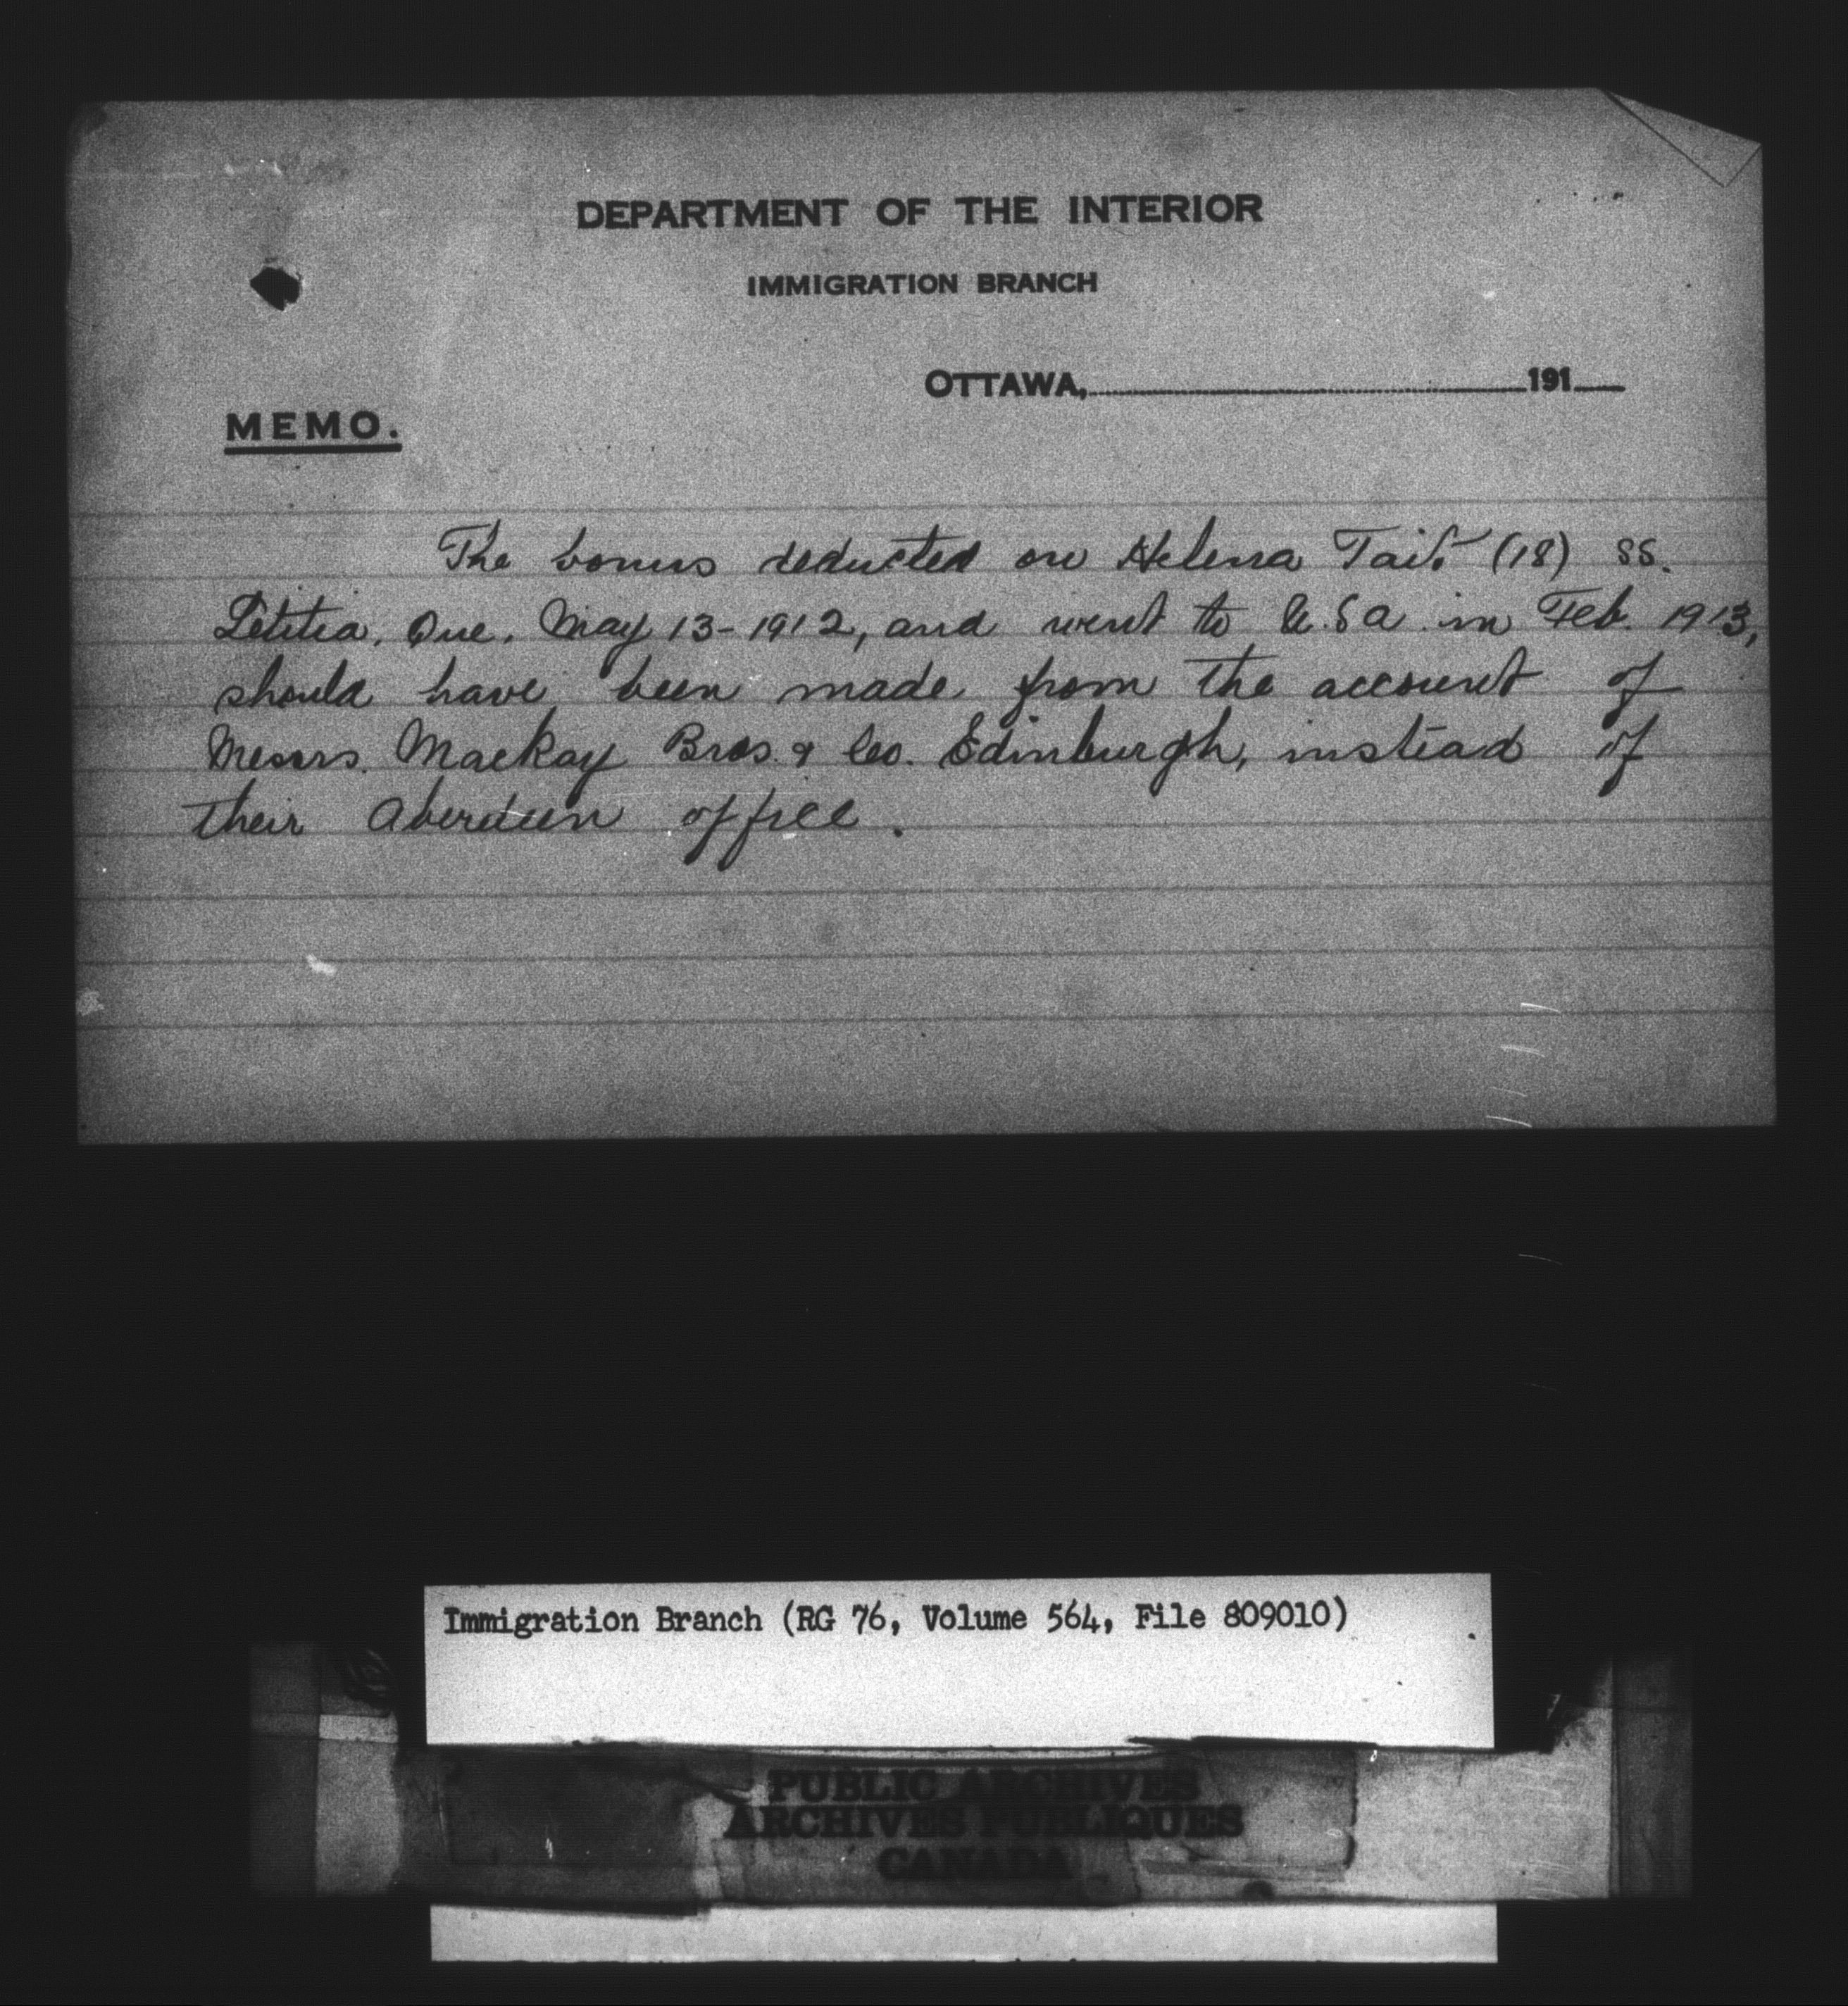 DEPARTMENT OF THE INTERIOR
IMMIGRATION BRANCH
OTTAWA, 191
MEMO.
The bonus deducted on Helena Tait (18) SS.
Letitia, Que. May 13-1912, and went to U.S.a in Feb. 1913,
should have been made from the account of
Messrs. Mackay Bros. & Co. Edinburgh, instead of
their Aberdeen office.
Immigration Branch (RG 76, Volume 564, File 809010)
PUBLIC ARCHIVES
ARCHIVES PUBLIQUES
CANADA